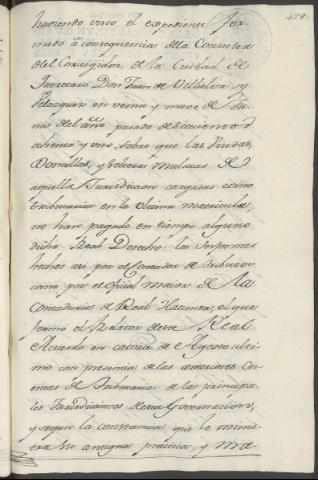 haviendo visto el expediente for-
mado à consequencia dela Consulta
del Corregidor de la Ciudad de
Queretaro Don Juan de Villalva, y
Velazquez en veinte y nueve de Ju-
nio del año pasado de setecientos
ochenta y uno, sobre que las Viudas,
Doncellas, y Solteras Mulatas de
aquella Jurisdiccion cargadas como
tributarias en la ultima matricula,
no han pagado en tiempo alguno
dicho Real Derecho: los Informes
hechos asi por el Contador de Tributos,
como por el Oficial mayor de la
Contaduria de Real Hacienda, el que
formó el Relator de este Real
Acuerdo en catorce de Agosto ulti-
mo con presencia de las anteriores
de Tributarios de las principa-
les Jurisdicciones de esta Governacion,
y segun la constancia que le minis-
tra su antigua practica, y ma-